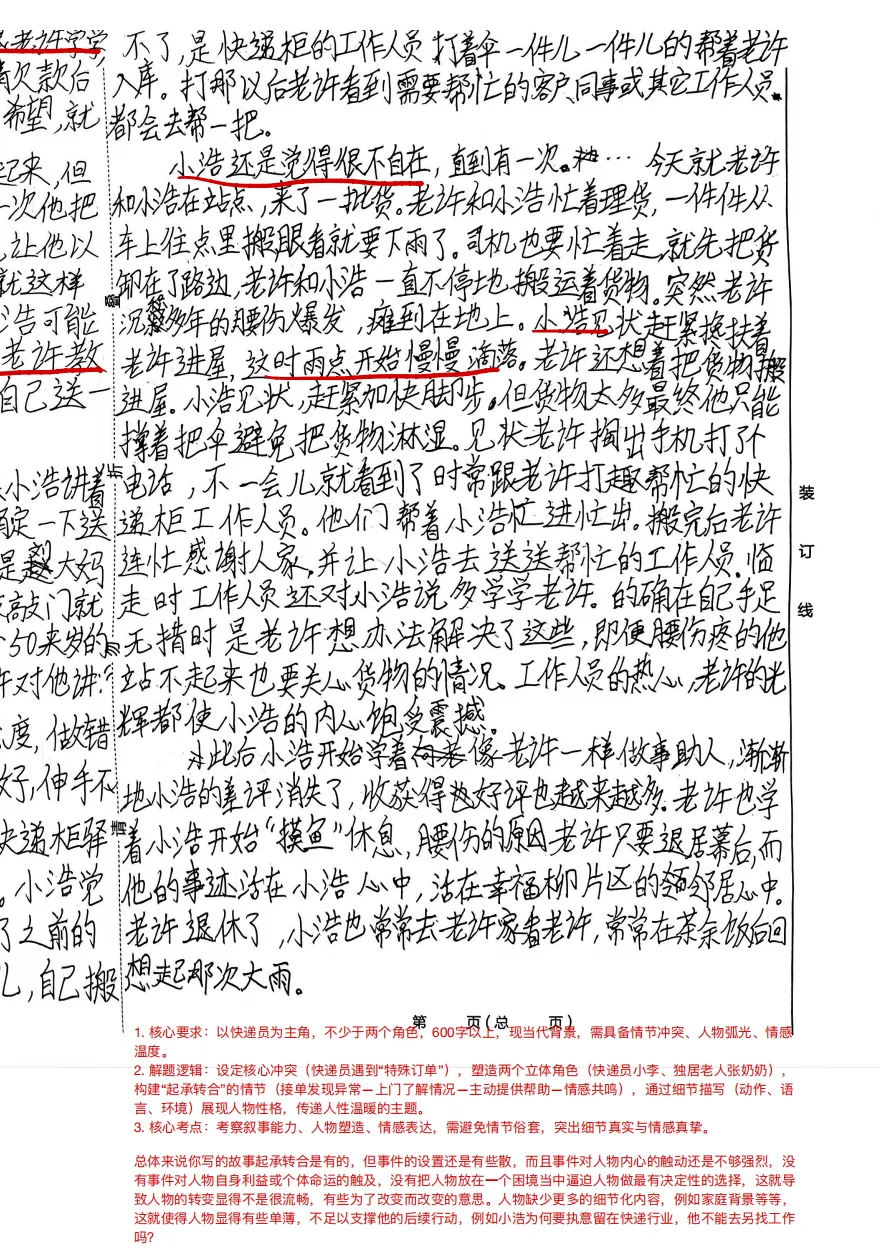 跟老许学学
清欠款后
希望,就
起来,但
一次他把
让他以
就这样
浩可能
老许教
自己送一
小浩讲着
确定一下送
是赵大妈
敲门就
50来岁的
许对他讲:
度,做错
好,伸手不
快递柜驿
。小浩觉
了之前的
儿,自己搬
不了,是快递柜的工作人员打着伞一件儿一件儿的帮着老许
入库。打那以后老许看到需要帮忙的客户、同事或其它工作人员
都会去帮一把。
小浩还是觉得很不自在,直到有一次。… 今天就老许
和小浩在站点,来了一批货。老许和小浩忙着理货,一件件从
车上往点里搬,眼看就要下雨了。司机也要忙着走,就先把货
卸在了路边,老许和小浩一直不停地搬运着货物。突然老许
沉积多年的腰伤爆发,瘫到在地上。小浩见状赶紧搀扶着
老许进屋,这时雨点开始慢慢滴落。老许还想着把货物搬
进屋。小浩见状,赶紧加快脚步。但货物太多最终他只能
撑着把伞避免把货物淋湿。见状老许掏出手机打了个
电话,不一会儿就看到了时常跟老许打趣帮忙的快
递柜工作人员。他们帮着小浩忙进忙出。搬完后老许
连忙感谢人家,并让小浩去送送帮忙的工作人员。临
走时工作人员还对小浩说多学学老许。的确在自己手足
无措时是老许想办法解决了这些,即便腰伤疼的他
站不起来也要关心货物的情况。工作人员的热心,老许的光
辉都使小浩的内心饱受震撼。
此后小浩开始学着像老许一样做事助人,渐渐
地小浩的差评消失了,收获得好评也越来越多。老许也学
着小浩开始“摸鱼”休息,腰伤的原因老许只要退居幕后,而
他的事迹活在小浩心中,活在幸福柳片区的邻居心中。
老许退休了,小浩也常常去老许家看老许,常常在茶余饭后回
想起那次大雨。
装
订
线
第 页(总 页)
1. 核心要求:以快递员为主角,不少于两个角色,600字以上,现当代背景,需具备情节冲突、人物弧光、情感
温度。
2. 解题逻辑:设定核心冲突(快递员遇到“特殊订单”),塑造两个立体角色(快递员小李、独居老人张奶奶),
构建“起承转合”的情节(接单发现异常—上门了解情况—主动提供帮助—情感共鸣),通过细节描写(动作、语
言、环境)展现人物性格,传递人性温暖的主题。
3. 核心考点:考察叙事能力、人物塑造、情感表达,需避免情节俗套,突出细节真实与情感真挚。
总体来说你写的故事起承转合是有的,但事件的设置还是有些散,而且事件对人物内心的触动还是不够强烈,没
有事件对人物自身利益或个体命运的触及,没有把人物放在一个困境当中逼迫人物做最有决定性的选择,这就导
致人物的转变显得不是很流畅,有些为了改变而改变的意思。人物缺少更多的细节化内容,例如家庭背景等等,
这就使得人物显得有些单薄,不足以支撑他的后续行动,例如小浩为何要执意留在快递行业,他不能去另找工作
吗?